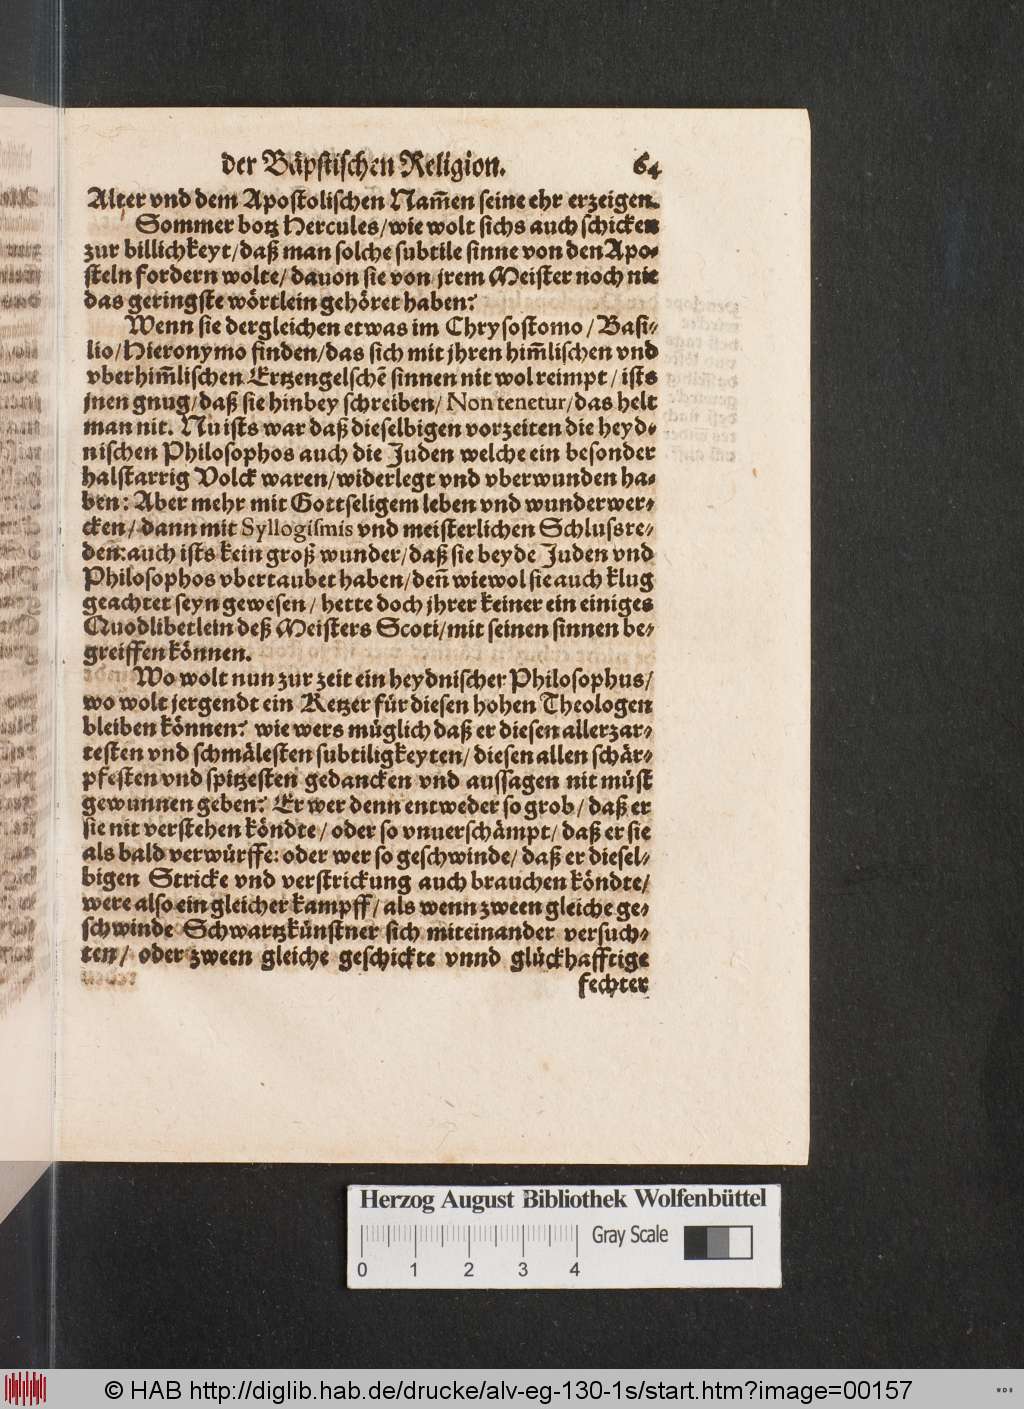 der Bäpstischen Religion. 64
Alter vnd dem Apostolischen Nam̃en seine ehr erzeigen.
Sommer botz Hercules/wie wolt sichs auch schicken
zur billichkeyt/daß man solche subtile sinne von den Apo-
steln fordern wolte/dauon sie von jrem Meister noch nie
das geringste wörtlein gehöret haben?
Wenn sie dergleichen etwas im Chrysostomo/Basi-
lio/Hieronymo finden/das sich mit jhren him̃lischen vnd
vberhim̃lischen Ertzengelschẽ sinnen nit wol reimpt/ists
jnen gnug/daß sie hinbey schreiben/Non tenetur/das helt
man nit. Nu ists war daß dieselbigen vorzeiten die heyd-
nischen Philosophos auch die Juden welche ein besonder
halstarrig Volck waren/widerlegt vnd vberwunden ha-
ben: Aber mehr mit Gottseligem leben vnd wunderwer-
cken/dann mit Syllogismis vnd meisterlichen Schlussre-
den:auch ists kein groß wunder/daß sie beyde Juden vnd
Philosophos vbertaubet haben/den̄ wiewol sie auch klug
geachtet seyn gewesen/hette doch jhrer keiner ein einiges
Quodlibetlein deß Meisters Scoti/mit seinen sinnen be-
greiffen können.
Wo wolt nun zur zeit ein heydnischer Philosophus/
wo wolt jergendt ein Ketzer für diesen hohen Theologen
bleiben können? wie wers müglich daß er diesen allerzar-
testen vnd schmälesten subtiligkeyten/diesen allen schär-
pfesten vnd spitzesten gedancken vnd aussagen nit müst
gewunnen geben? Er wer denn entweder so grob/daß er
sie nit verstehen köndte/oder so vnuerschämpt/daß er sie
als bald verwürffe: oder wer so geschwinde/daß er diesel-
bigen Stricke vnd verstrickung auch brauchen köndte/
were also ein gleicher kampff/als wenn zween gleiche ge-
schwinde Schwartzkünstner sich miteinander versuch-
ten/oder zween gleiche geschickte vnnd glückhafftige
fechter
Herzog August Bibliothek Wolfenbüttel
Gray Scale
0 1 2 3 4
© HAB http://diglib.hab.de/drucke/alv-eg-130-1s/start.htm?image=00157